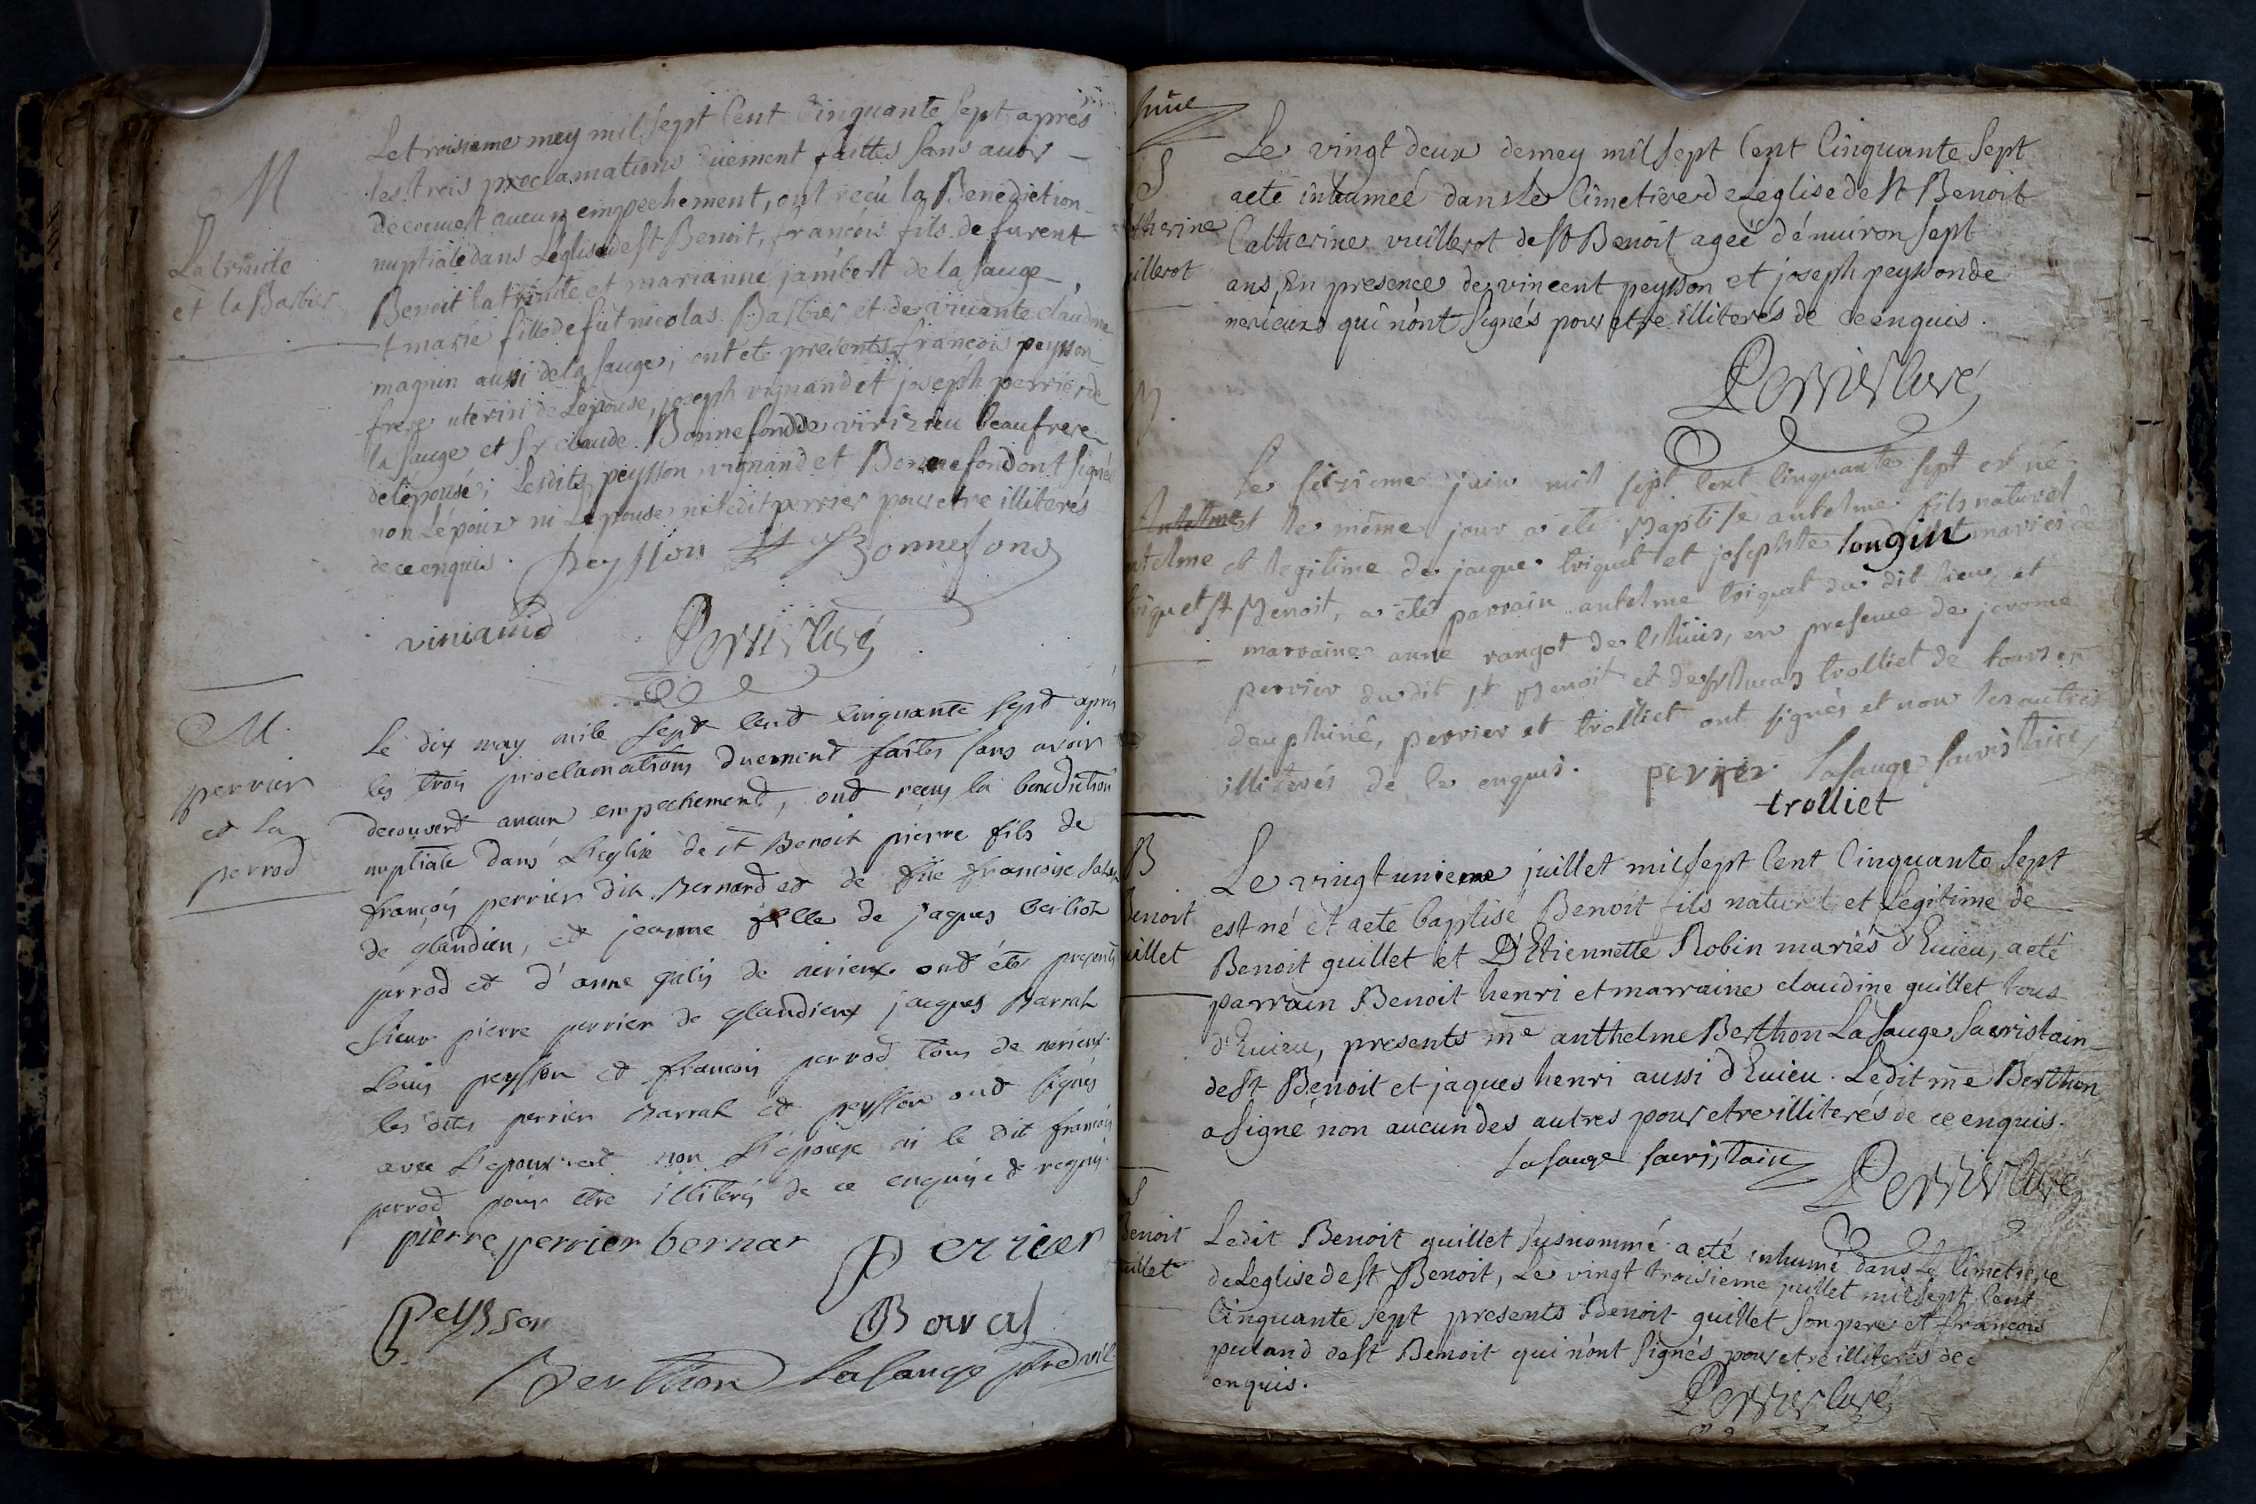 M
La trinite
et la Barbier
Le troisieme mey mil sept Cent Cinquante sept après
les trois proclamations duement faittes sans avoir
decouvert aucun empechement, ont reçu la Benediction
nuptiale dans Leglise de St Benoit, françois fils de furent
Benoit la trinite et marianne jambert de la sauge,
et marie fille de fut nicolas Barbier et de vivante claudine
magnin aussi de la sauge; ont ete presents françois peysson
frere uterin de Lepouse, joseph vignand et joseph perrier de
la sauge et Sr claude Bonnefond de virizieu beaufrere
de lépouse; Lesdits peysson, vignand et Bonnefond ont signés
non Lépoux ni Lepouse ni ledit perrier pour etre illiterés
de ce enquis. peysson Bonnefond
viniand Perrier Curé
M.
perrier
et la
perrod
Le dix may mile sept cent cinquante sept après
les trois proclamations duement faites sans avoir
decouvert aucun empechement, ont reçus la benediction
nuptiale dans L'eglise de St Benoit pierre fils de
françois perrier dit Bernard et de françoise
de glandieu, et jeanne fille de jaques berliot
perrod et d'anne galin de nerieux ont étés presents
sieur pierre perrier de glandieux jacques Barral
Louis peysson et françois perrod tous de nerieux
les dits perrier Barral et peysson ont signés
avec L'epoux et non L'épouse ni le dit françois
perrod pour etre illiterés de ce enquis et requis
pierre perrier bernar Perrier
Peysson Baral
Berthon Lasauge
S
Catherine
vuillerot
Le vingt deux de mey mil sept Cent Cinquante Sept
a eté inhumeé dans le Cimetiere de Leglise de St Benoit
Catherine vuillerot de St Benoit ageé d'énuiron sept
ans, En presence de vincent peysson et joseph peysson de
nerieux qui n'ont signés pour etre illiterés de ce enquis.
Perrier Curé
antelme
triquet
Le sixieme juin mil sept cent cinquante sept est né
et le même jour a eté Baptisé antelme fils naturel
et legitime de jaque triquet et josephte longin mariés de
St Benoit, a été parrain antelme triquet du dit lieu, et
marraine anne rangot de Lhuis, en presence de jerome
perrier du dit St Benoit et de trolliet de
dauphiné, perrier et trolliet ont signés et non les autres
illiterés de ce enquis. perrier lasauge sacristain
trolliet
B
Benoit
guillet
Le vingt unieme juillet mil sept Cent Cinquante sept
est né et a eté baptisé Benoit fils naturel et Legitime de
Benoit guillet et D'Etiennette Robin mariés d'Euieu, a eté
parrain Benoit henri et marraine claudine guillet tous
d'Euieu, presents me anthelme Berthon La sauge sacristain
de St Benoit et jaques henri aussi d'Euieu. Ledit me Berthon
a signé non aucun des autres pour etre illiterés de ce enquis.
lasauge sacristain Perrier Curé
S
Benoit
guillet
Ledit Benoit guillet susnommé a eté inhumé dans Le Cimetiere
de Leglise de St Benoit, Le vingt troisieme juillet mil sept Cent
Cinquante sept presents Benoit guillet son pere et françois
puland de St Benoit qui n'ont signés pour etre illiterés de ce
enquis.
Perrier Curé